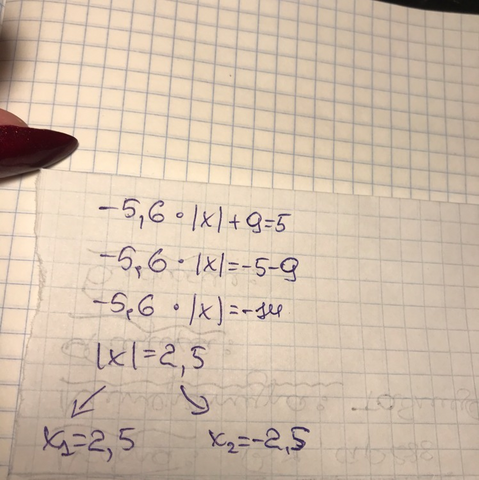 -5,6 · |x| + 9 = 5
-5,6 · |x| = -5 - 9
-5,6 · |x| = -14
|x| = 2,5
x₁ = 2,5 x₂ = -2,5